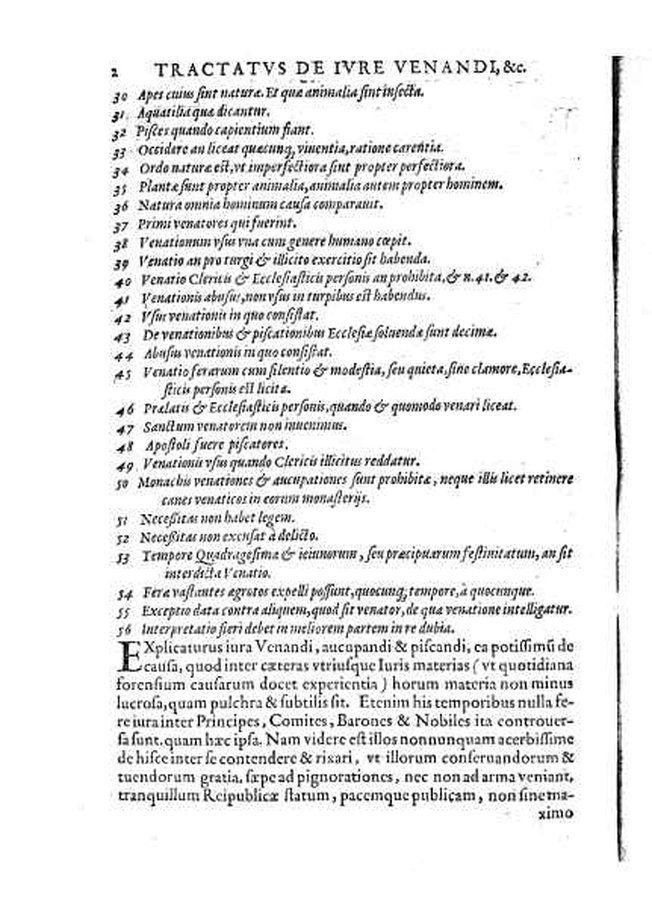 2 TRACTATVS DE IVRE VENANDI, &c.
30 Apes cuius sint naturæ. Et quæ animalia sint insecta.
31 Aquatilia quæ dicantur.
32 Pisces quando capientium fiant.
33 Occidere an liceat quæcunq, viuentia, ratione carentia.
34 Ordo naturæ est, vt imperfectiora sint propter perfectiora.
35 Plantæ sunt propter animalia, animalia autem propter hominem.
36 Natura omnia hominum causa comparauit.
37 Primi venatores qui fuerint.
38 Venationum vsus vna cum genere humano cœpit.
39 Venatio an pro turpi & illicito exercitio sit habenda.
40 Venatio Clericis & Ecclesiasticis personis an prohibita, & n. 41. & 42.
41 Venationis abusus, non vsus in turpibus est habendus.
42 Vsus venationis in quo consistat.
43 De venationibus & piscationibus Ecclesiæ soluendæ sunt decimæ.
44 Abusus venationis in quo consistat.
45 Venatio ferarum cum silentio & modestia, seu quieta, sine clamore, Ecclesia-
sticis personis est licita.
46 Prælatis & Ecclesiasticis personis, quando & quomodo venari liceat.
47 Sanctum venatorem non inuenimus.
48 Apostoli fuere piscatores.
49 Venationis vsus quando Clericis illicitus reddatur.
50 Monachis venationes & aucupationes sunt prohibitæ, neque illis licet retinere
canes venaticos in eorum monasterijs.
51 Necessitas non habet legem.
52 Necessitas non excusat à delicto.
53 Tempore Quadragesimæ & ieiuniorum, seu præcipuarum festiuitatum, an sit
interdicta Venatio.
54 Feræ vastantes agrotos expelli possunt, quocunq; tempore, à quocunque.
55 Exceptio data contra aliquem, quod sit venator, de qua venatione intelligatur.
56 Interpretatio fieri debet in meliorem partem in re dubia.
EXplicaturus iura Venandi, aucupandi & piscandi, ea potissimũ de
causa, quod inter cæteras vtriusque Iuris materias ( vt quotidiana
forensium causarum docet experientia ) horum materia non minus
lucrosa, quam pulchra & subtilis sit. Etenim his temporibus nulla fe-
re iura inter Principes, Comites, Barones & Nobiles ita controuer-
sa sunt, quam hæc ipsa. Nam videre est illos nonnunquam acerbissime
de hisce inter se contendere & rixari, vt illorum conseruandorum &
tuendorum gratia, sæpe ad pignorationes, nec non ad arma veniant,
tranquillum Reipublicæ statum, pacemque publicam, non sine ma-
ximo